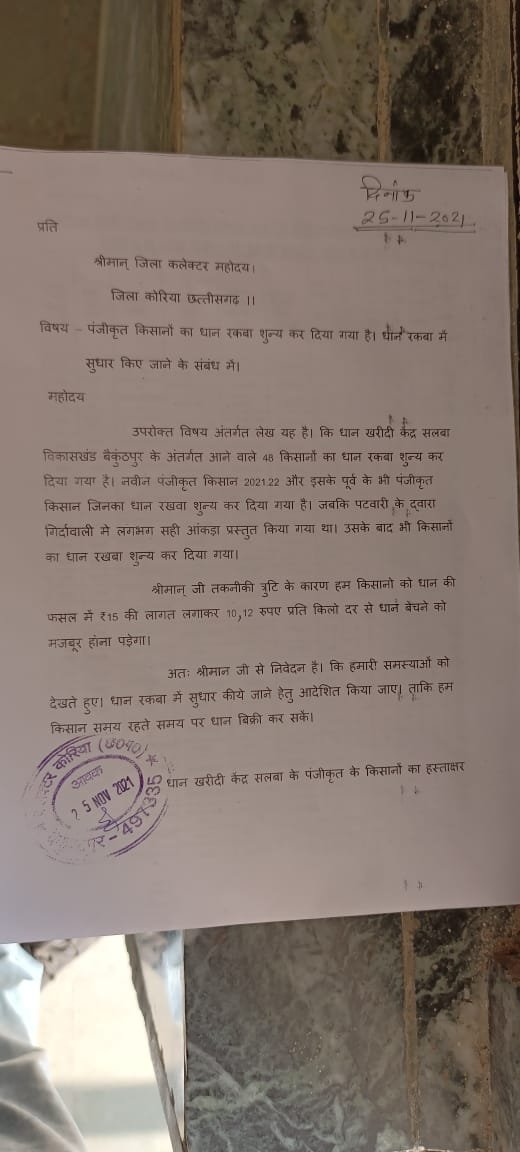 दिनांक
25-11-2021
प्रति
श्रीमान् जिला कलेक्टर महोदय।
जिला कोरिया छत्तीसगढ ।।
विषय – पंजीकृत किसानों का धान रकबा शुन्य कर दिया गया है। धान रकबा में
सुधार किए जाने के संबंध में।
महोदय
उपरोक्त विषय अंतर्गत लेख यह है। कि धान खरीदी केंद्र सलबा
विकासखंड बैकुंठपुर के अंतर्गत आने वाले 48 किसानों का धान रकबा शुन्य कर
दिया गया है। नवीन पंजीकृत किसान 2021.22 और इसके पूर्व के भी पंजीकृत
किसान जिनका धान रखवा शुन्य कर दिया गया है। जबकि पटवारी के द्वारा
गिर्दावाली मे लगभग सही आंकड़ा प्रस्तुत किया गया था। उसके बाद भी किसानों
का धान रखबा शुन्य कर दिया गया।
श्रीमान् जी तकनीकी त्रुटि के कारण हम किसानो को धान की
फसल में ₹15 की लागत लगाकर 10,12 रुपए प्रति किलो दर से धान बेंचने को
मजबूर होना पड़ेगा।
अतः श्रीमान जी से निवेदन है। कि हमारी समस्याओं को
देखते हुए। धान रकबा में सुधार कीये जाने हेतु आदेशित किया जाए। ताकि हम
किसान समय रहते समय पर धान बिक्री कर सकें।
धान खरीदी केंद्र सलबा के पंजीकृत के किसानों का हस्ताक्षर
कोरिया (छ0ग0) *
आवक
25 NOV 2021
497335